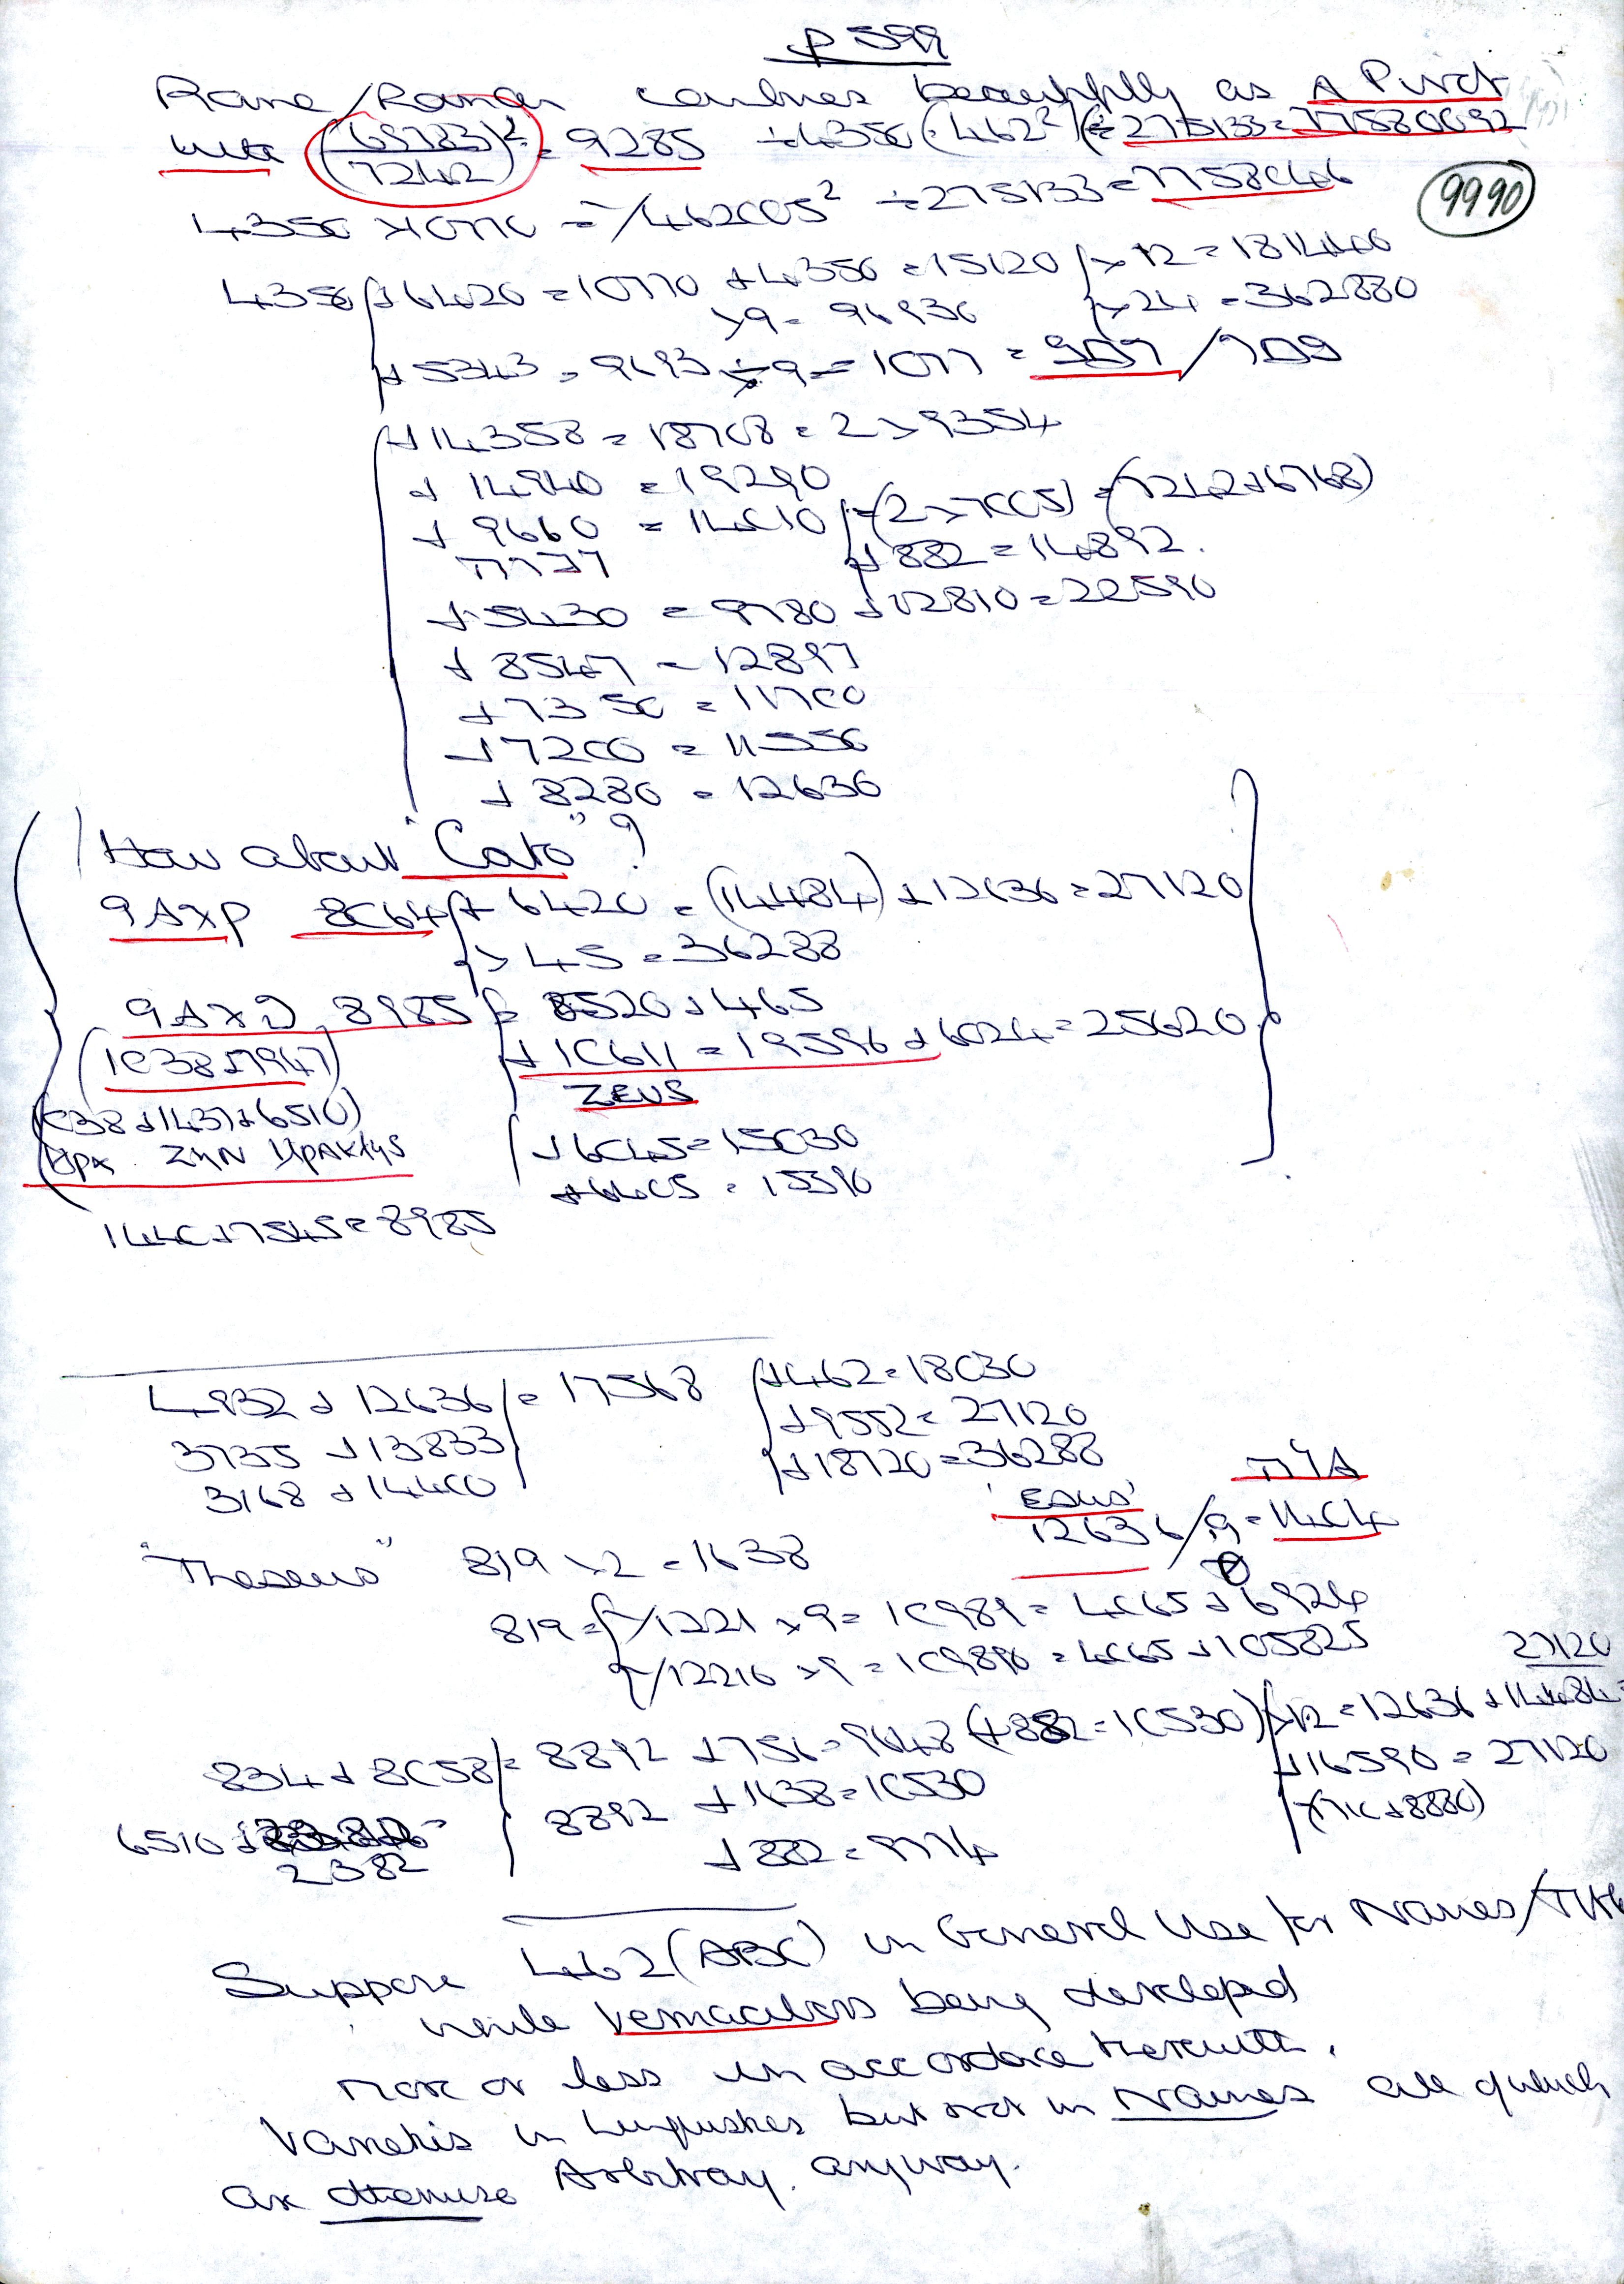 p 599
Rome/Roman combines beautifully as A Pivot
with (65783/7242)² = 9285 ÷ 4350 (·462²) (÷ 275133 = 77580692
4350 × 10770 = √462005² ÷ 275133 = 7758046
9990
4350 + 6420 = 10770 + 4350 = 15120 × 12 = 181440
× 9 = 96930 × 24 = 362880
+ 5343 = 9693 ÷ 9 = 1077 =
+ 14358 = 18708 = 2 × 9354
+ 14940 = 19290
+ 9660 = 14010 = (2 × 7005) = (7242 + 6768)
+ 882 = 14892.
+ 5430 = 9780 + 12810 = 22590
+ 8547 = 12897
+ 7350 = 11700
+ 7200 = 11550
+ 8280 = 12630
How about "Cato"?
8064 + 6420 = (14484) + 12636 = 27120
× 45 = 36288
8985 = 8520 + 465
(1038 + 7947) + 10611 = 19596 + 6024 = 25620
ZEUS
(038 + 1437 + 6510) + 6045 = 15030
+ 6405 = 15390
1440 + 7545 = 8985
4932 + 12636 = 17568 + 462 = 18030
3735 + 13833 + 9552 = 27120
3168 + 14400 + 18720 = 36288
'Esus'
12636 / 9 = 1404
"Theseus" 819 × 2 = 1638
819 = √1221 × 9 = 10989 = 4065 + 6924
√12216 × 9 = 109890 = 4065 + 105825
27120
834 + 8058 = 8892 + 756 = 9648 (+ 882 = 10530) × 12 = 12636 + 14484 =
8892 + 1638 = 10530 + 16590 = 27120
6510 + 2382 + 882 = 9774 (7710 + 8880)
Suppose 462 (ABC) in General Use for Names/
while Vernaculars being developed
more or less in accordance therewith.
Varieties in Linguistics but not in Names all of which
are otherwise Arbitrary. anyway.